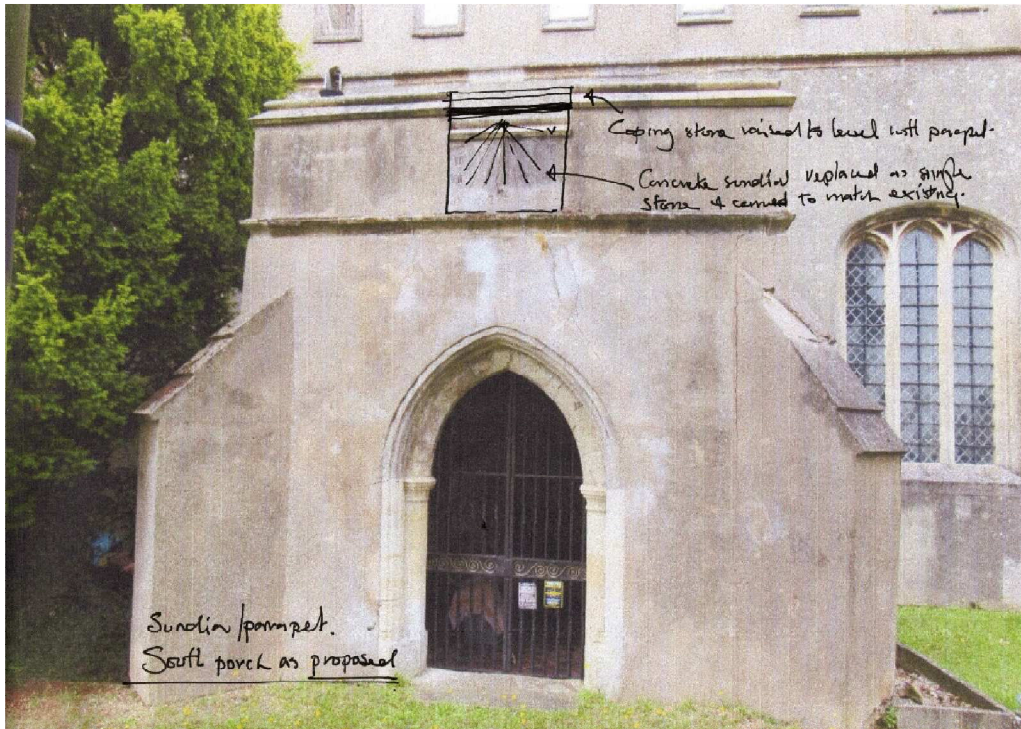 Coping stone raised to level with parapet.
V
Concrete sundial replaced as single
stone & carved to match existing.
Sundial/parapet.
South porch as proposed